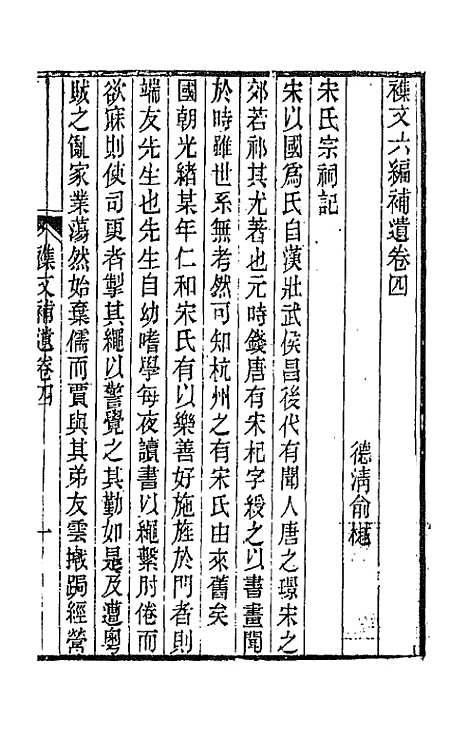 襍文六編補遺卷四
德淸俞樾
宋氏宗祠記
宋以國爲氏自漢壯武侯昌後代有聞人唐之璟宋之
郊若祁其尤著也元時錢唐有宋杞字綬之以書畫聞
於時雖世系無考然可知杭州之有宋氏由來舊矣
國朝光緖某年仁和宋氏有以樂善好施旌於門者則
端友先生也先生自幼嗜學每夜讀書以繩繫肘倦而
欲寐則使司更者掣其繩以警覺之其勤如是及遭粵
賊之亂家業蕩然始棄儒而賈與其弟友雲撠跼經營
襍文補遺卷四
一